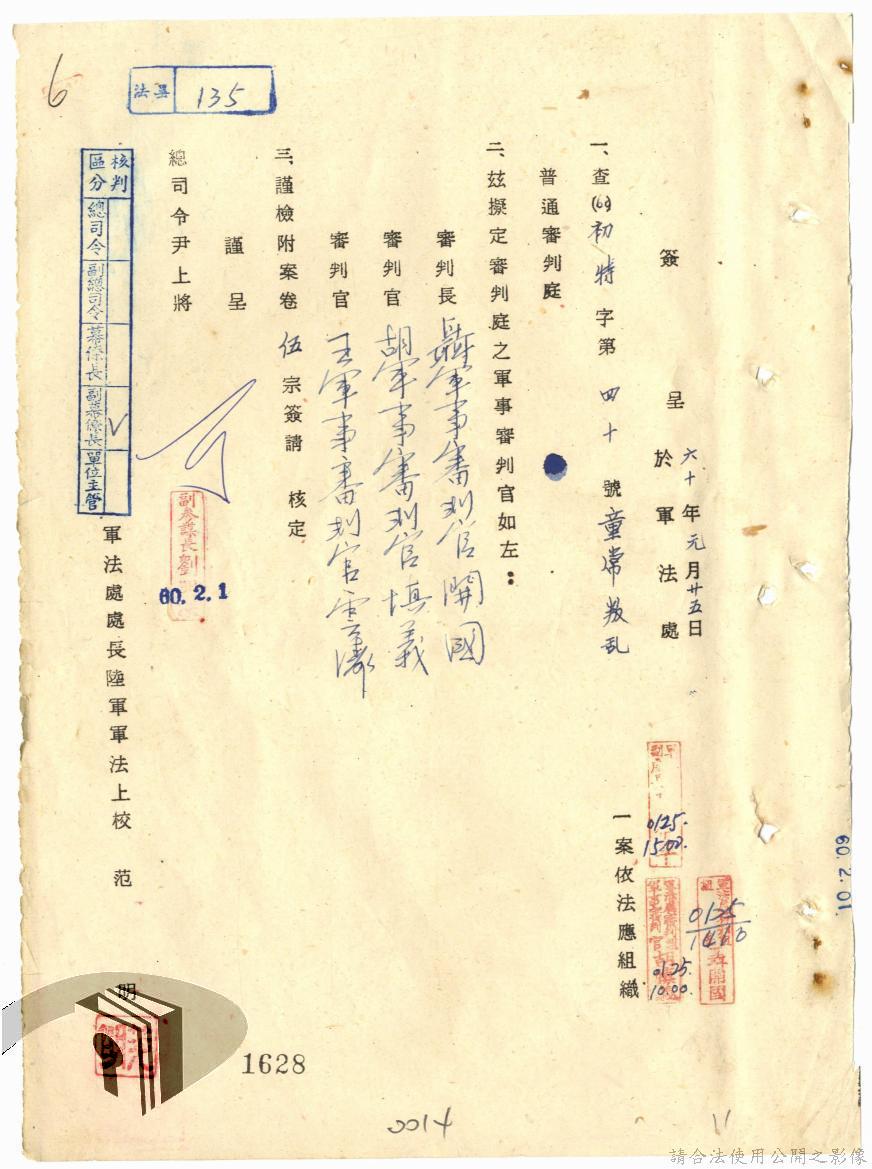 簽 呈 於 軍 法 處
六十年元月廿五日
一、查(60)初特字第四十號童常叛乱一案依法應組織
普通審判庭
二、玆擬定審判庭之軍事審判官如左：
審判長 聶軍事審判官開國
審判官 胡軍事審判官慎義
審判官 王軍事審判官雲濤
三、謹檢附案卷伍宗簽請 核定
謹呈
總司令尹上將
軍法處處長陸軍軍法上校 范 明
副參謀長劉
60.2.1
核判區分
總司令
副總司令
幕僚長
副幕僚長
√
單位主管
法㠭 135
6
0125.
1500.
0125
1440
0125.
1000.
60.2.01.
1628
0014
11
請合法使用公開之影像